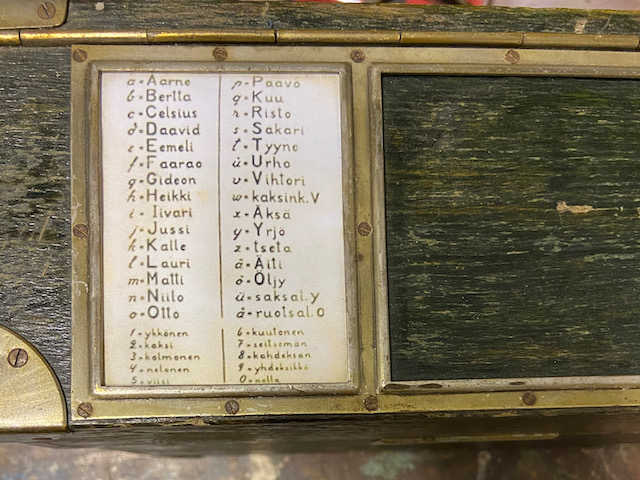 a = Aarne
b = Bertta
c = Celsius
d = Daavid
e = Eemeli
f = Faarao
g = Gideon
h = Heikki
i = Iivari
j = Jussi
k = Kalle
l = Lauri
m = Matti
n = Niilo
o = Otto
1 = ykkönen
2 = kaksi
3 = kolmonen
4 = nelonen
5 = viisi
p = Paavo
q = Kuu
r = Risto
s = Sakari
t = Tyyne
u = Urho
v = Vihtori
w = kaksink.V
x = Äksä
y = Yrjö
z = tseta
ä = Äiti
ö = Öljy
ü = saksal.y
å = ruotsal.O
6 = kuutonen
7 = seitsemän
8 = kahdeksan
9 = yhdeksikkö
0 = nolla